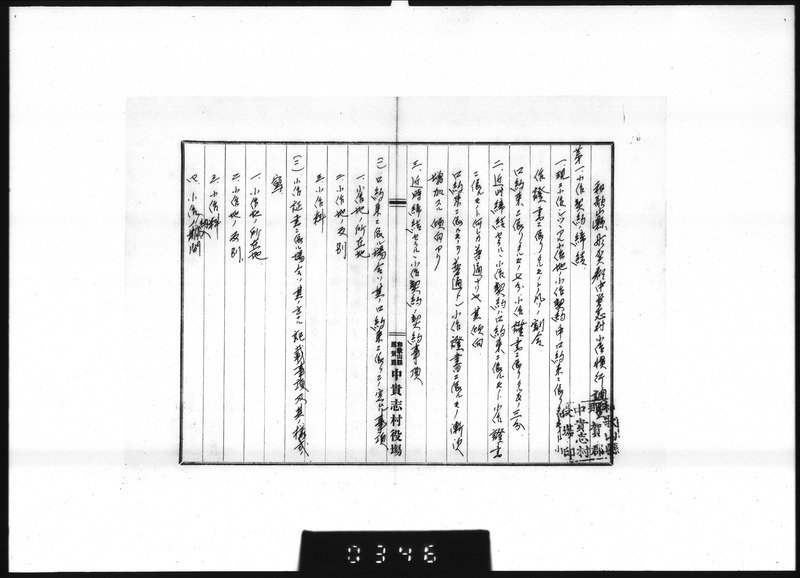 和歌山縣那賀郡中貴志村小作慣行調査
第一、小作契約ノ締結
一、現ニ小作シツツアル小作地小作契約中口約束ニ依リタルモノト小
作證書ニ依リタルモノトノ割合
口約束ニ依リタルモノ七分小作證書ニ依リタルモノ三分
二、近時締結セラルル小作契約ハ口約束ニ依ルモノト小作證書
ニ依ルモノト何レカ普通ナリヤ其傾向
口約束ニ依ルモノヲ普通トシ小作證書ニ依ルモノ漸次
増加スル傾向アリ
三、近時締結セラルル小作契約ノ契約事項
(一)口約束ニ依ル場合ハ其ノ口約束ニ依リテ定ムル事項
一、小作地ノ所在地
二、小作地ノ反別
三、小作料
(二)小作証書ニ依ル場合ハ其ノ主ナル記載事項及其ノ様式
等
一、小作地ノ所在地
二、小作地ノ反別
三、小作料
四、小作契約期間
和歌山縣
那賀郡
中貴志村役場
和歌山縣
那賀郡
中貴志村
役場印
0346